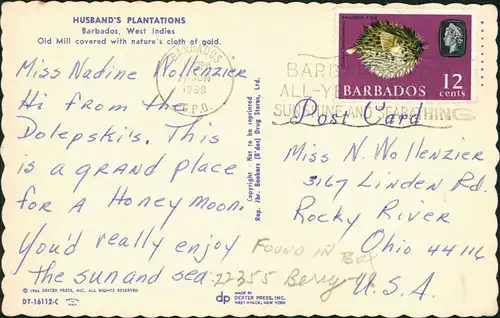 HUSBAND'S PLANTATIONS
Barbados, West Indies
Old Mill covered with nature's cloth of gold.
Miss Nadine Wollenzier
Hi from the
Dolepski's. This
is a grand place
for a Honey moon.
You'd really enjoy
the sun and sea.
© 1966 DEXTER PRESS, INC. ALL RIGHTS RESERVED
DT-16112-C
Copyright - Not to be reprinted
Rep. Jbr. Bookers (B'dos) Drug Stores, Ltd.
dp
MADE BY
DEXTER PRESS, INC.
WEST NYACK, NEW YORK
BARBADOS
JUN
1968
G.P.O.
ALL-YE
SUNSHINE AND SEABATHING
BALLOON FISH
12
cents
BARBADOS
Post Card
Miss N. Wollenzier
3167 Linden Rd.
Rocky River
Ohio 44116
U.S.A.
Found in Box
22355 Berry